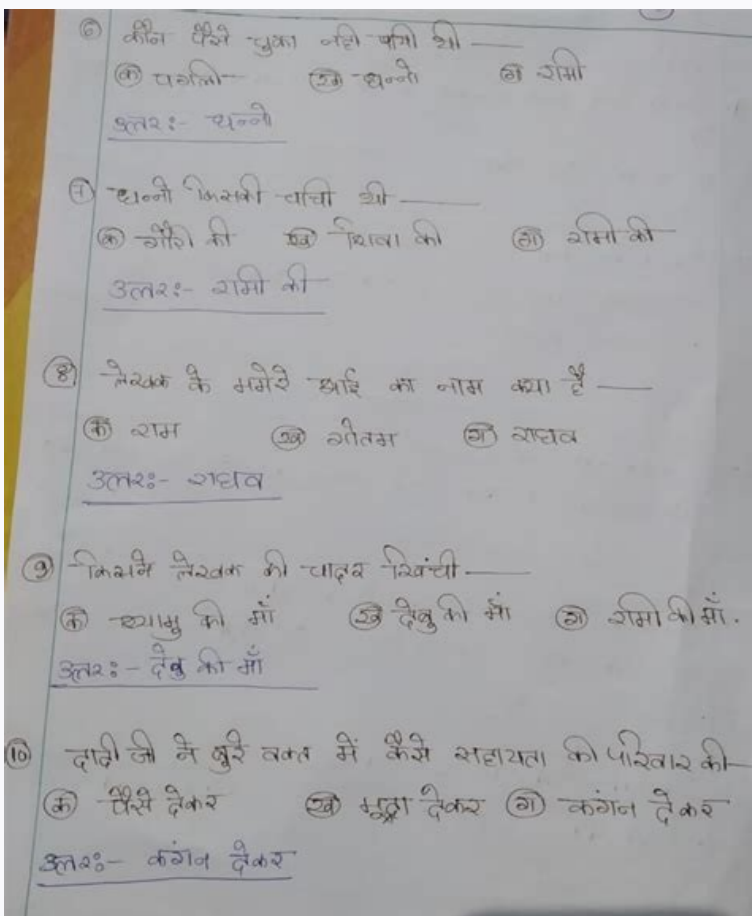 ⑥ कौन पैसे चुका नही पायी थी —
क पगली ख धन्नो ग रामी
उत्तर:- धन्नो
⑦ धन्नो किसकी चाची थी —
क गौरी की ख शिवा की ग रामी की
उत्तर:- रामी की
⑧ लेखक के ममेरे भाई का नाम क्या है —
क राम ख गोतम ग राघव
उत्तर:- राघव
⑨ किसने लेखक की चादर खिंची —
क श्यामु की माँ ख देबु की माँ ग रामी की माँ.
उत्तर:- देबु की माँ
⑩ दादी जी ने बुरे वक्त में कैसे सहायता की परिवार की —
क पैसे देकर ख मुद्रा देकर ग कंगन देकर
उत्तर:- कंगन देकर